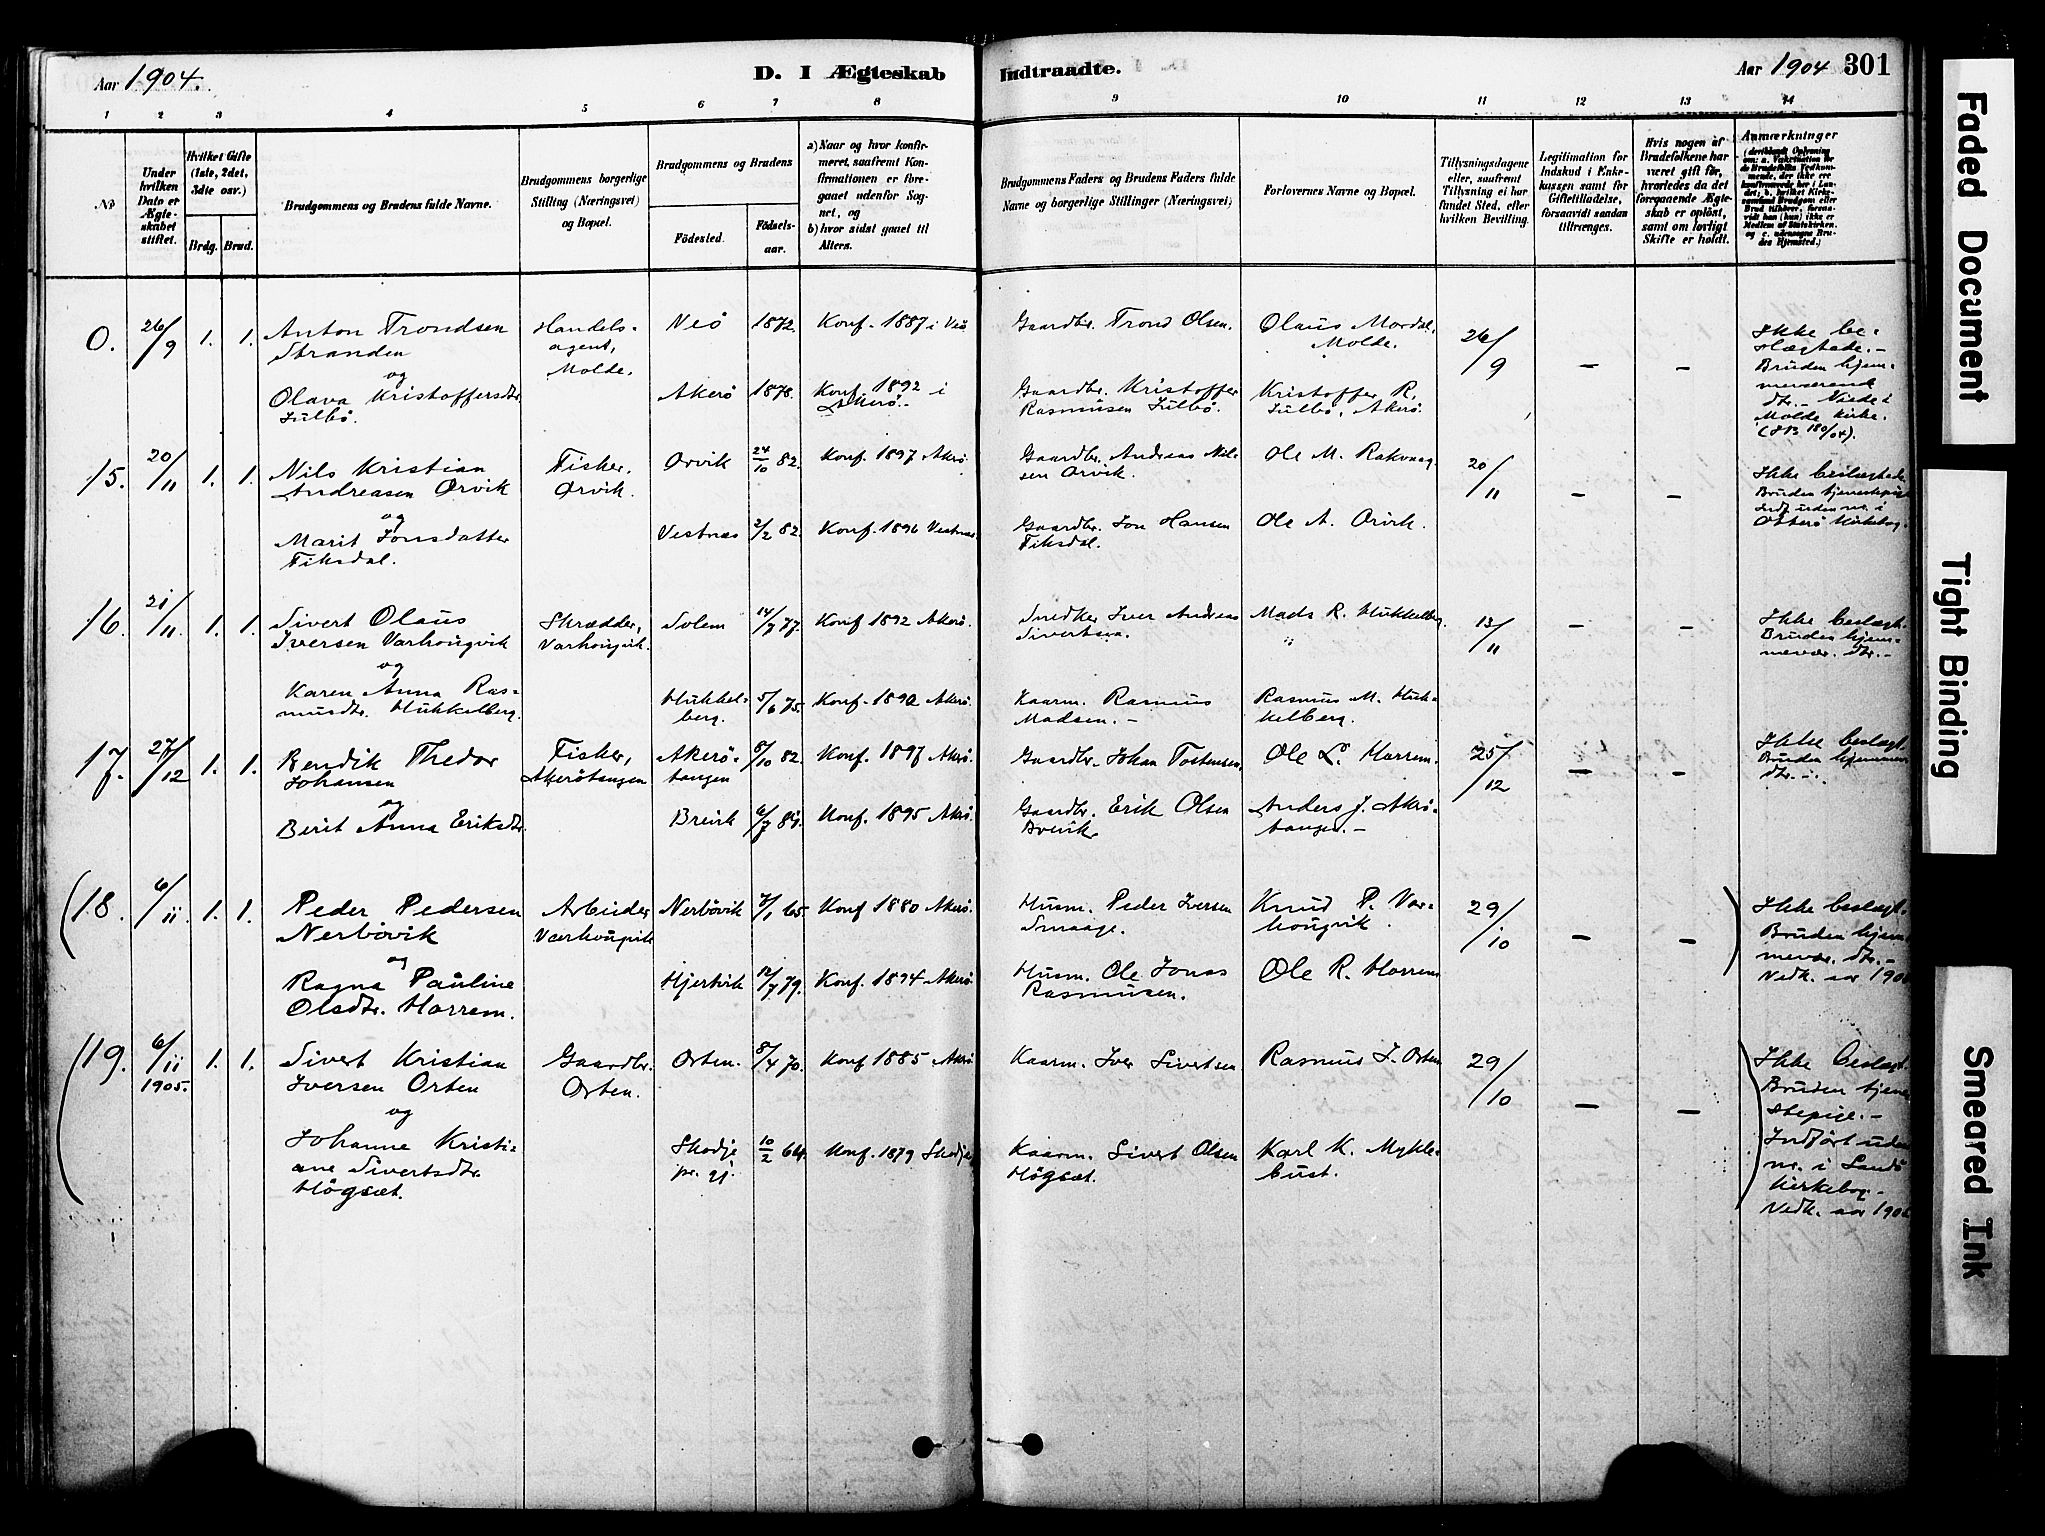 Aar 1904.
D. I Ægteskab
Indtraadte.
Aar 1904
301
1 2 3 4 5 6 7 8 9 10 11 12 13 14
No
Under hvilken Dato er Ægteskabet stiftet.
Hvilket Gifte (1ste, 2det, 3die osv.)
Brdg. Brud.
Brudgommens og Brudens fulde Navne.
Brudgommens borgerlige Stilling (Næringsvei) og Bopæl.
Brudgommens og Brudens
Födested.
Födsels-aar.
a) Naar og hvor konfir-
meret, saafremt Kon-
firmationen er fore-
gaaet udenfor Sog-
net, og
b) hvor sidst gaaet til
Alters.
Brudgommens Faders og Brudens Faders fulde
Navne og borgerlige Stillinger (Næringsvei)
Forlovernes Navne og Bopæl.
Tillysningsdagene
eller, saafremt
Tillysning ei har
fundet Sted, efter
hvilken Bevilling.
Legitimation for
Indskud i Enke-
kassen samt for
Giftetilladelse,
forsaavidt saadan
tiltrænges.
Hvis nogen af
Brudefolkene har
været gift før,
hvorledes da det
foregaaende Ægte-
skab er oplöst,
samt om lovligt
Skifte er holdt.
Anmærkninger
0. 26/9 1. 1.
Anton Trondsen
Stranden
og
Olava Kristoffersdtr
Julbö.
Handels-
agent,
Molde.
Veö 1872. Konf. 1887 i Veö
Akerö 1878. Konf. 1892 i
Akerö.
Gaardbr. Trond Olsen.
Gaardbr. Kristoffer
Rasmusen Julbö.
Olaus Mordal,
Molde.
Kristoffer R.
Julbö, Akerö.
26/9 - -
Ikke be-
slægtede.-
Bruden hjem-
meværende
dtr. - Viede i
Molde kirke.
(JB 180/04).
15. 20/11 1. 1.
Nils Kristian
Andreasen Orvik
og
Marit Jonsdatter
Fiksdal.
Fisker,
Orvik.
Orvik 24/10 82. Konf. 1897 Akerö.
Vestnæs 2/2 82. Konf. 1896 Vestnæs.
Gaardbr. Andreas Nil-
sen Orvik.
Gaardbr. Jon Hansen
Fiksdal.
Ole M. Rakvaag.
Ole A. Orvik.
20/11 - -
Ikke beslægtede
Bruden tjenestepige
Indf. uden nr. i
Otterö Kirkebog.
16. 21/11 1. 1.
Sivert Olaus
Iversen Varhougvik
og
Karen Anna Ras-
musdtr. Hukkelberg.
Skrædder,
Varhougvik.
Solem 14/7 77. Konf 1892 Akerö.
Hukkel-
berg. 5/6 75. Konf. 1890 Akerö.
Snedker Iver Andreas
Sivertsen.
Kaarm. Rasmus
Madsen. -
Mads R. Hukkelberg.
"
Rasmus M. Huk-
kelberg.
13/11 - -
Ikke beslægt.
Bruden hjem-
mevær. dtr.-
17. 27/12 1. 1.
Bendik Thedor
Johansen
og
Berit Anna Eriksdtr.
Fisker,
Akerötangen
Akerö-
tangen 8/10 82. Konf. 1897 Akerö.
Breivik 6/7 80. Konf. 1895 Akerö.
Gaardbr. Johan Tostensen.
Gaardbr. Erik Olsen
Breivik
Ole L. Harrem.
Anders J. Akrö-
tangen. -
25/12 - -
Ikke beslægt.
Bruden hjemmevær
dtr. -
(18. 6/11 1. 1.
Peder Pedersen
Nerbövik
og
Ragna Pauline
Olsdtr. Harrem.
Arbeider
Varhougvik
Nerbövik 7/1 65. Konf 1880 Akerö.
Hjertvik 12/7 79. Konf. 1894 Akerö.
Husm. Peder Iversen
Smaage.
Husm. Ole Jonas
Rasmusen.
Knud P. Var-
hougvik.
Ole R. Harrem
29/10 - -
Ikke beslægt.
Bruden hjem-
mevær. dtr.-
Vedk. aar 190
(19. 6/11 1905. 1. 1.
Sivert Kristian
Iversen Orten
og
Johanne Kristi-
ane Sivertsdtr.
Högset.
Gaardbr.
Orten.
Orten. 8/4 70. Konf 1885 Akrö
Skodje
pr. gj. 10/2 64. Konf. 1879 Skodje
Kaarm. Iver Sivertsen
Kaarm. Sivert Olsen
Högset.
Rasmus J. Orten
Karl K. Mykle-
bust.
29/10 - -
Ikke beslægt.
Bruden tjene-
stepige.-
Indført uden
nr. i Sands
Kirkebog -
Vedk. aar 190
Faded Document
Tight Binding
Smeared Ink